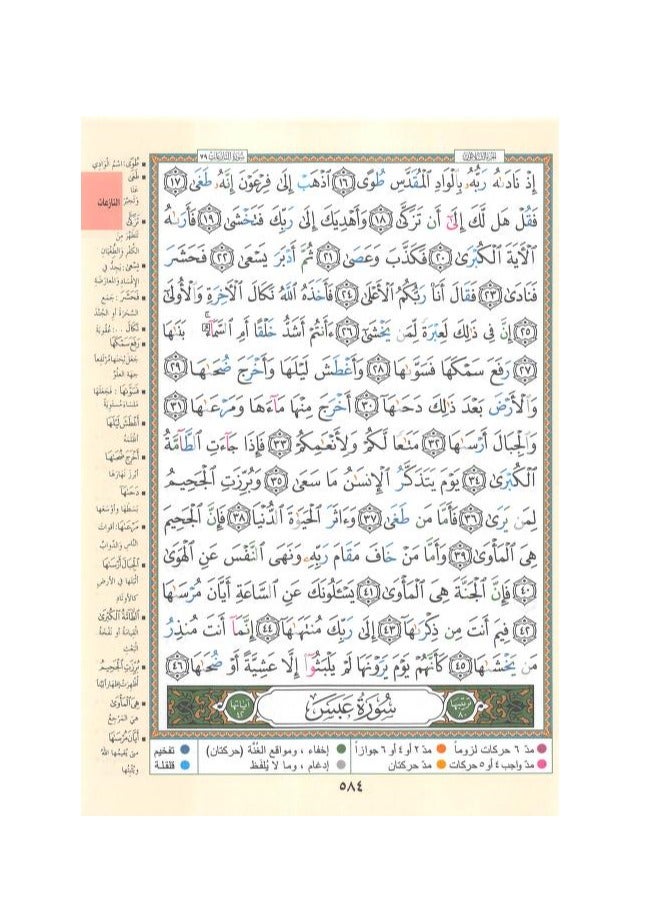 سُورَةُ النَّازِعَاتِ ٧٩
إِذْ نَادَىٰهُ رَبُّهُۥ بِٱلْوَادِ ٱلْمُقَدَّسِ طُوًى ١٦ ٱذْهَبْ إِلَىٰ فِرْعَوْنَ إِنَّهُۥ طَغَىٰ ١٧
فَقُلْ هَل لَّكَ إِلَىٰٓ أَن تَزَكَّىٰ ١٨ وَأَهْدِيَكَ إِلَىٰ رَبِّكَ فَتَخْشَىٰ ١٩ فَأَرَىٰهُ
ٱلْـَٔايَةَ ٱلْكُبْرَىٰ ٢٠ فَكَذَّبَ وَعَصَىٰ ٢١ ثُمَّ أَدْبَرَ يَسْعَىٰ ٢٢ فَحَشَرَ
فَنَادَىٰ ٢٣ فَقَالَ أَنَا۠ رَبُّكُمُ ٱلْأَعْلَىٰ ٢٤ فَأَخَذَهُ ٱللَّهُ نَكَالَ ٱلْـَٔاخِرَةِ وَٱلْأُولَىٰٓ
٢٥ إِنَّ فِى ذَٰلِكَ لَعِبْرَةً لِّمَن يَخْشَىٰٓ ٢٦ ءَأَنتُمْ أَشَدُّ خَلْقًا أَمِ ٱلسَّمَآءُ ۚ بَنَىٰهَا
٢٧ رَفَعَ سَمْكَهَا فَسَوَّىٰهَا ٢٨ وَأَغْطَشَ لَيْلَهَا وَأَخْرَجَ ضُحَىٰهَا ٢٩
وَٱلْأَرْضَ بَعْدَ ذَٰلِكَ دَحَىٰهَآ ٣٠ أَخْرَجَ مِنْهَا مَآءَهَا وَمَرْعَىٰهَا ٣١
وَٱلْجِبَالَ أَرْسَىٰهَا ٣٢ مَتَٰعًا لَّكُمْ وَلِأَنْعَٰمِكُمْ ٣٣ فَإِذَا جَآءَتِ ٱلطَّآمَّةُ
ٱلْكُبْرَىٰ ٣٤ يَوْمَ يَتَذَكَّرُ ٱلْإِنسَٰنُ مَا سَعَىٰ ٣٥ وَبُرِّزَتِ ٱلْجَحِيمُ
لِمَن يَرَىٰ ٣٦ فَأَمَّا مَن طَغَىٰ ٣٧ وَءَاثَرَ ٱلْحَيَوٰةَ ٱلدُّنْيَا ٣٨ فَإِنَّ ٱلْجَحِيمَ
هِىَ ٱلْمَأْوَىٰ ٣٩ وَأَمَّا مَنْ خَافَ مَقَامَ رَبِّهِۦ وَنَهَى ٱلنَّفْسَ عَنِ ٱلْهَوَىٰ
٤٠ فَإِنَّ ٱلْجَنَّةَ هِىَ ٱلْمَأْوَىٰ ٤١ يَسْـَٔلُونَكَ عَنِ ٱلسَّاعَةِ أَيَّانَ مُرْسَىٰهَا
٤٢ فِيمَ أَنتَ مِن ذِكْرَىٰهَآ ٤٣ إِلَىٰ رَبِّكَ مُنتَهَىٰهَآ ٤٤ إِنَّمَآ أَنتَ مُنذِرُ
مَن يَخْشَىٰهَا ٤٥ كَأَنَّهُمْ يَوْمَ يَرَوْنَهَا لَمْ يَلْبَثُوٓا۟ إِلَّا عَشِيَّةً أَوْ ضُحَىٰهَا ٤٦
سُورَةُ عَبَسَ
طُوًى: اسْمُ الْوَادِي
طَغَى
عَتَا
وَتَجَبَّرَ
النازعات
تَزَكَّى
تَتَطَهَّرَ مِنَ
الْكُفْرِ وَالطُّغْيَانِ
يَسْعَى: يَجِدُّ فِي
الْإِفْسَادِ وَالْمُعَارَضَةِ
فَحَشَرَ: جَمَعَ
السَّحَرَةَ أَوِ الْجُنْدَ
نَكَالَ..: عُقُوبَةَ
رَفَعَ سَمْكَهَا
جَعَلَ ثِخَنَهَا مُرْتَفِعاً
جِهَةَ الْعُلُوِّ
فَسَوَّاهَا: فَجَعَلَهَا
مَلْسَاءَ مُسْتَوِيَةً
أَغْطَشَ لَيْلَهَا
أَظْلَمَهُ
أَخْرَجَ ضُحَاهَا
أَبْرَزَ نَهَارَهَا
دَحَاهَا
بَسَطَهَا وَأَوْسَعَهَا
مَرْعَاهَا: أَقْوَاتَ
النَّاسِ وَالدَّوَابِّ
الْجِبَالَ أَرْسَاهَا
أَثْبَتَهَا فِي الْأَرْضِ
كَالْأَوْتَادِ
الطَّامَّةُ الْكُبْرَى
الْقِيَامَةُ أَوْ نَفْخَةُ
الْبَعْثِ
بُرِّزَتِ الْجَحِيمُ
أُظْهِرَتْ إِظْهَاراً بَيِّناً
هِيَ الْمَأْوَى
هِيَ الْمَرْجِعُ
أَيَّانَ مُرْسَاهَا
مَتَى يُقِيمُهَا اللهُ
وَيُثْبِتُهَا
مدّ ٦ حركات لزوماً مدّ ٢ أو ٤ أو ٦ جوازاً إخفاء ، ومواقع الغُنَّة (حركتان) تفخيم
مدّ واجب ٤ أو ٥ حركات مدّ حركتان إدغام ، وما لا يُلفَظ قلقلة
٥٨٤